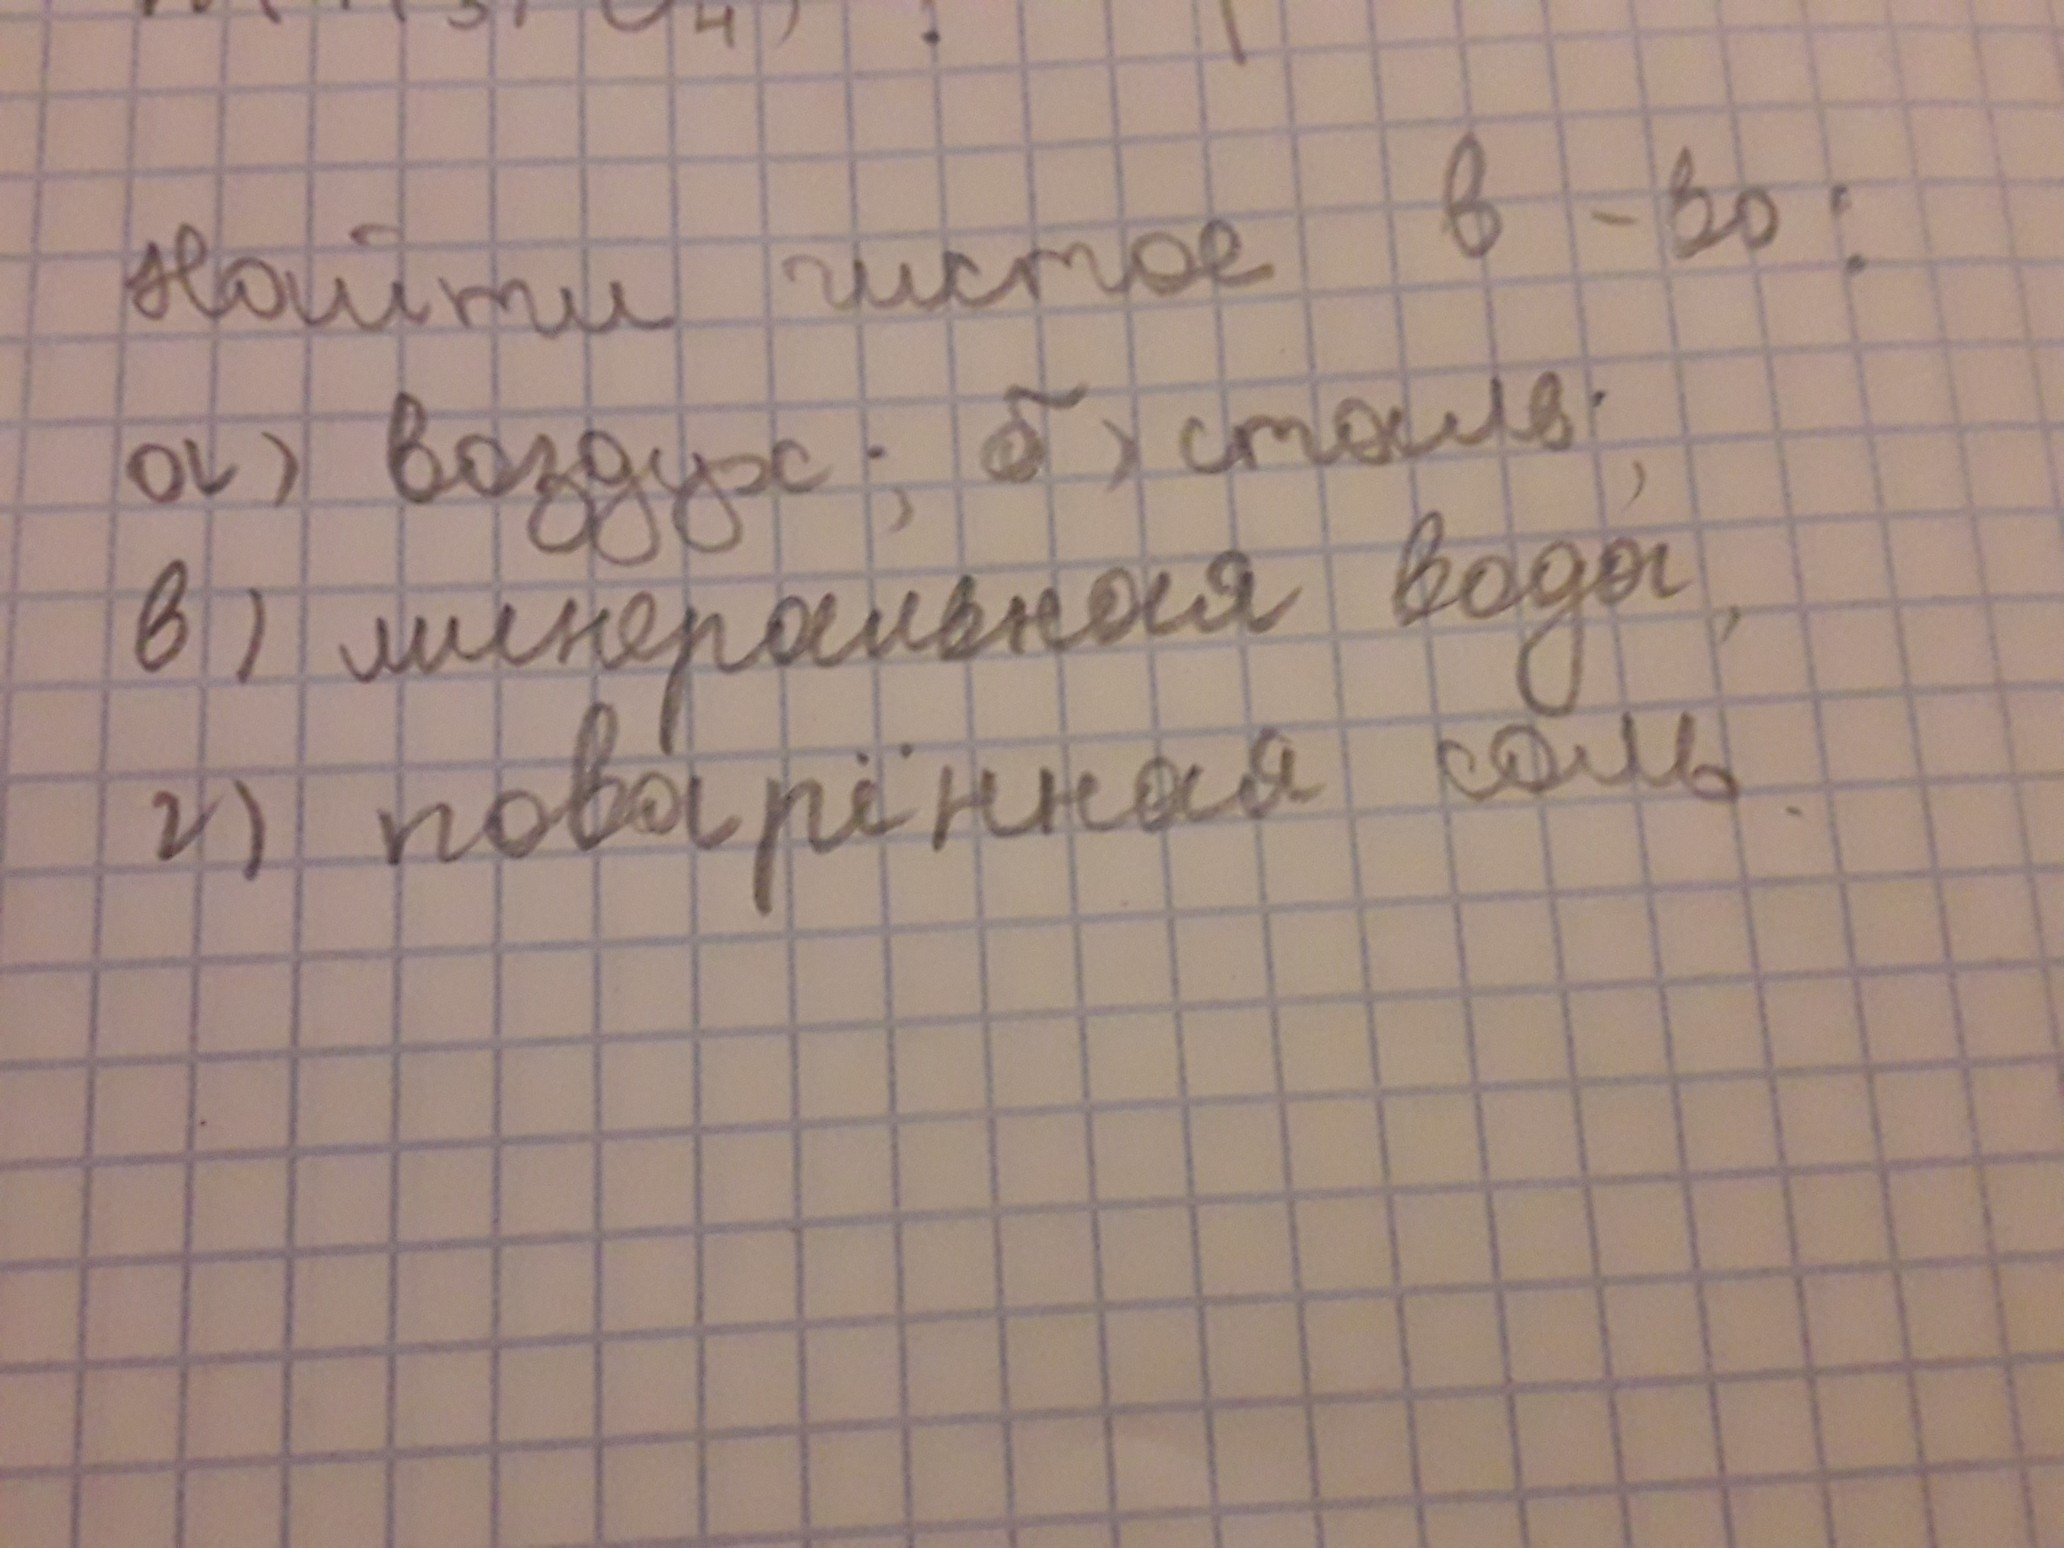 Найти чистое в-во:
а) воздух; б) сталь;
в) минеральная вода,
г) поварённая соль.